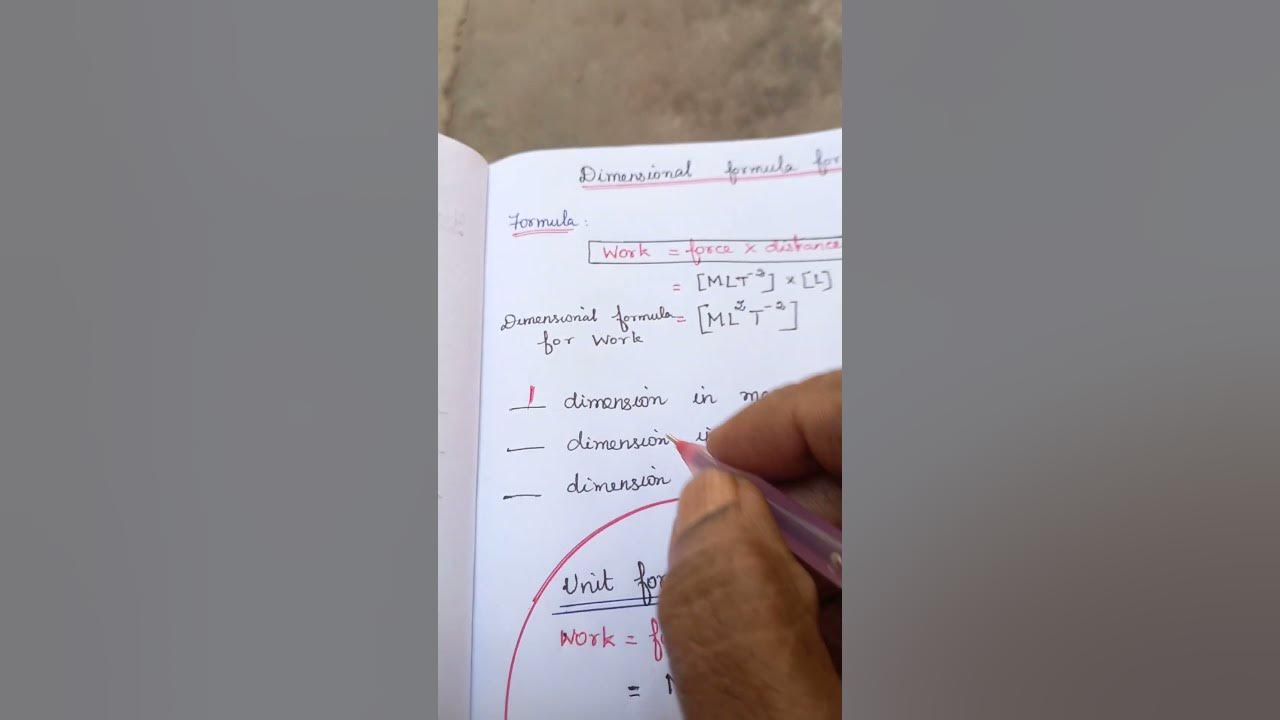 Dimensional formula for
Formula :
Work = force × distance
= [MLT⁻²] × [L]
Dimensional formula = [ML²T⁻²]
for Work
1 dimension in
dimension
dimension
Unit for
Work =
=